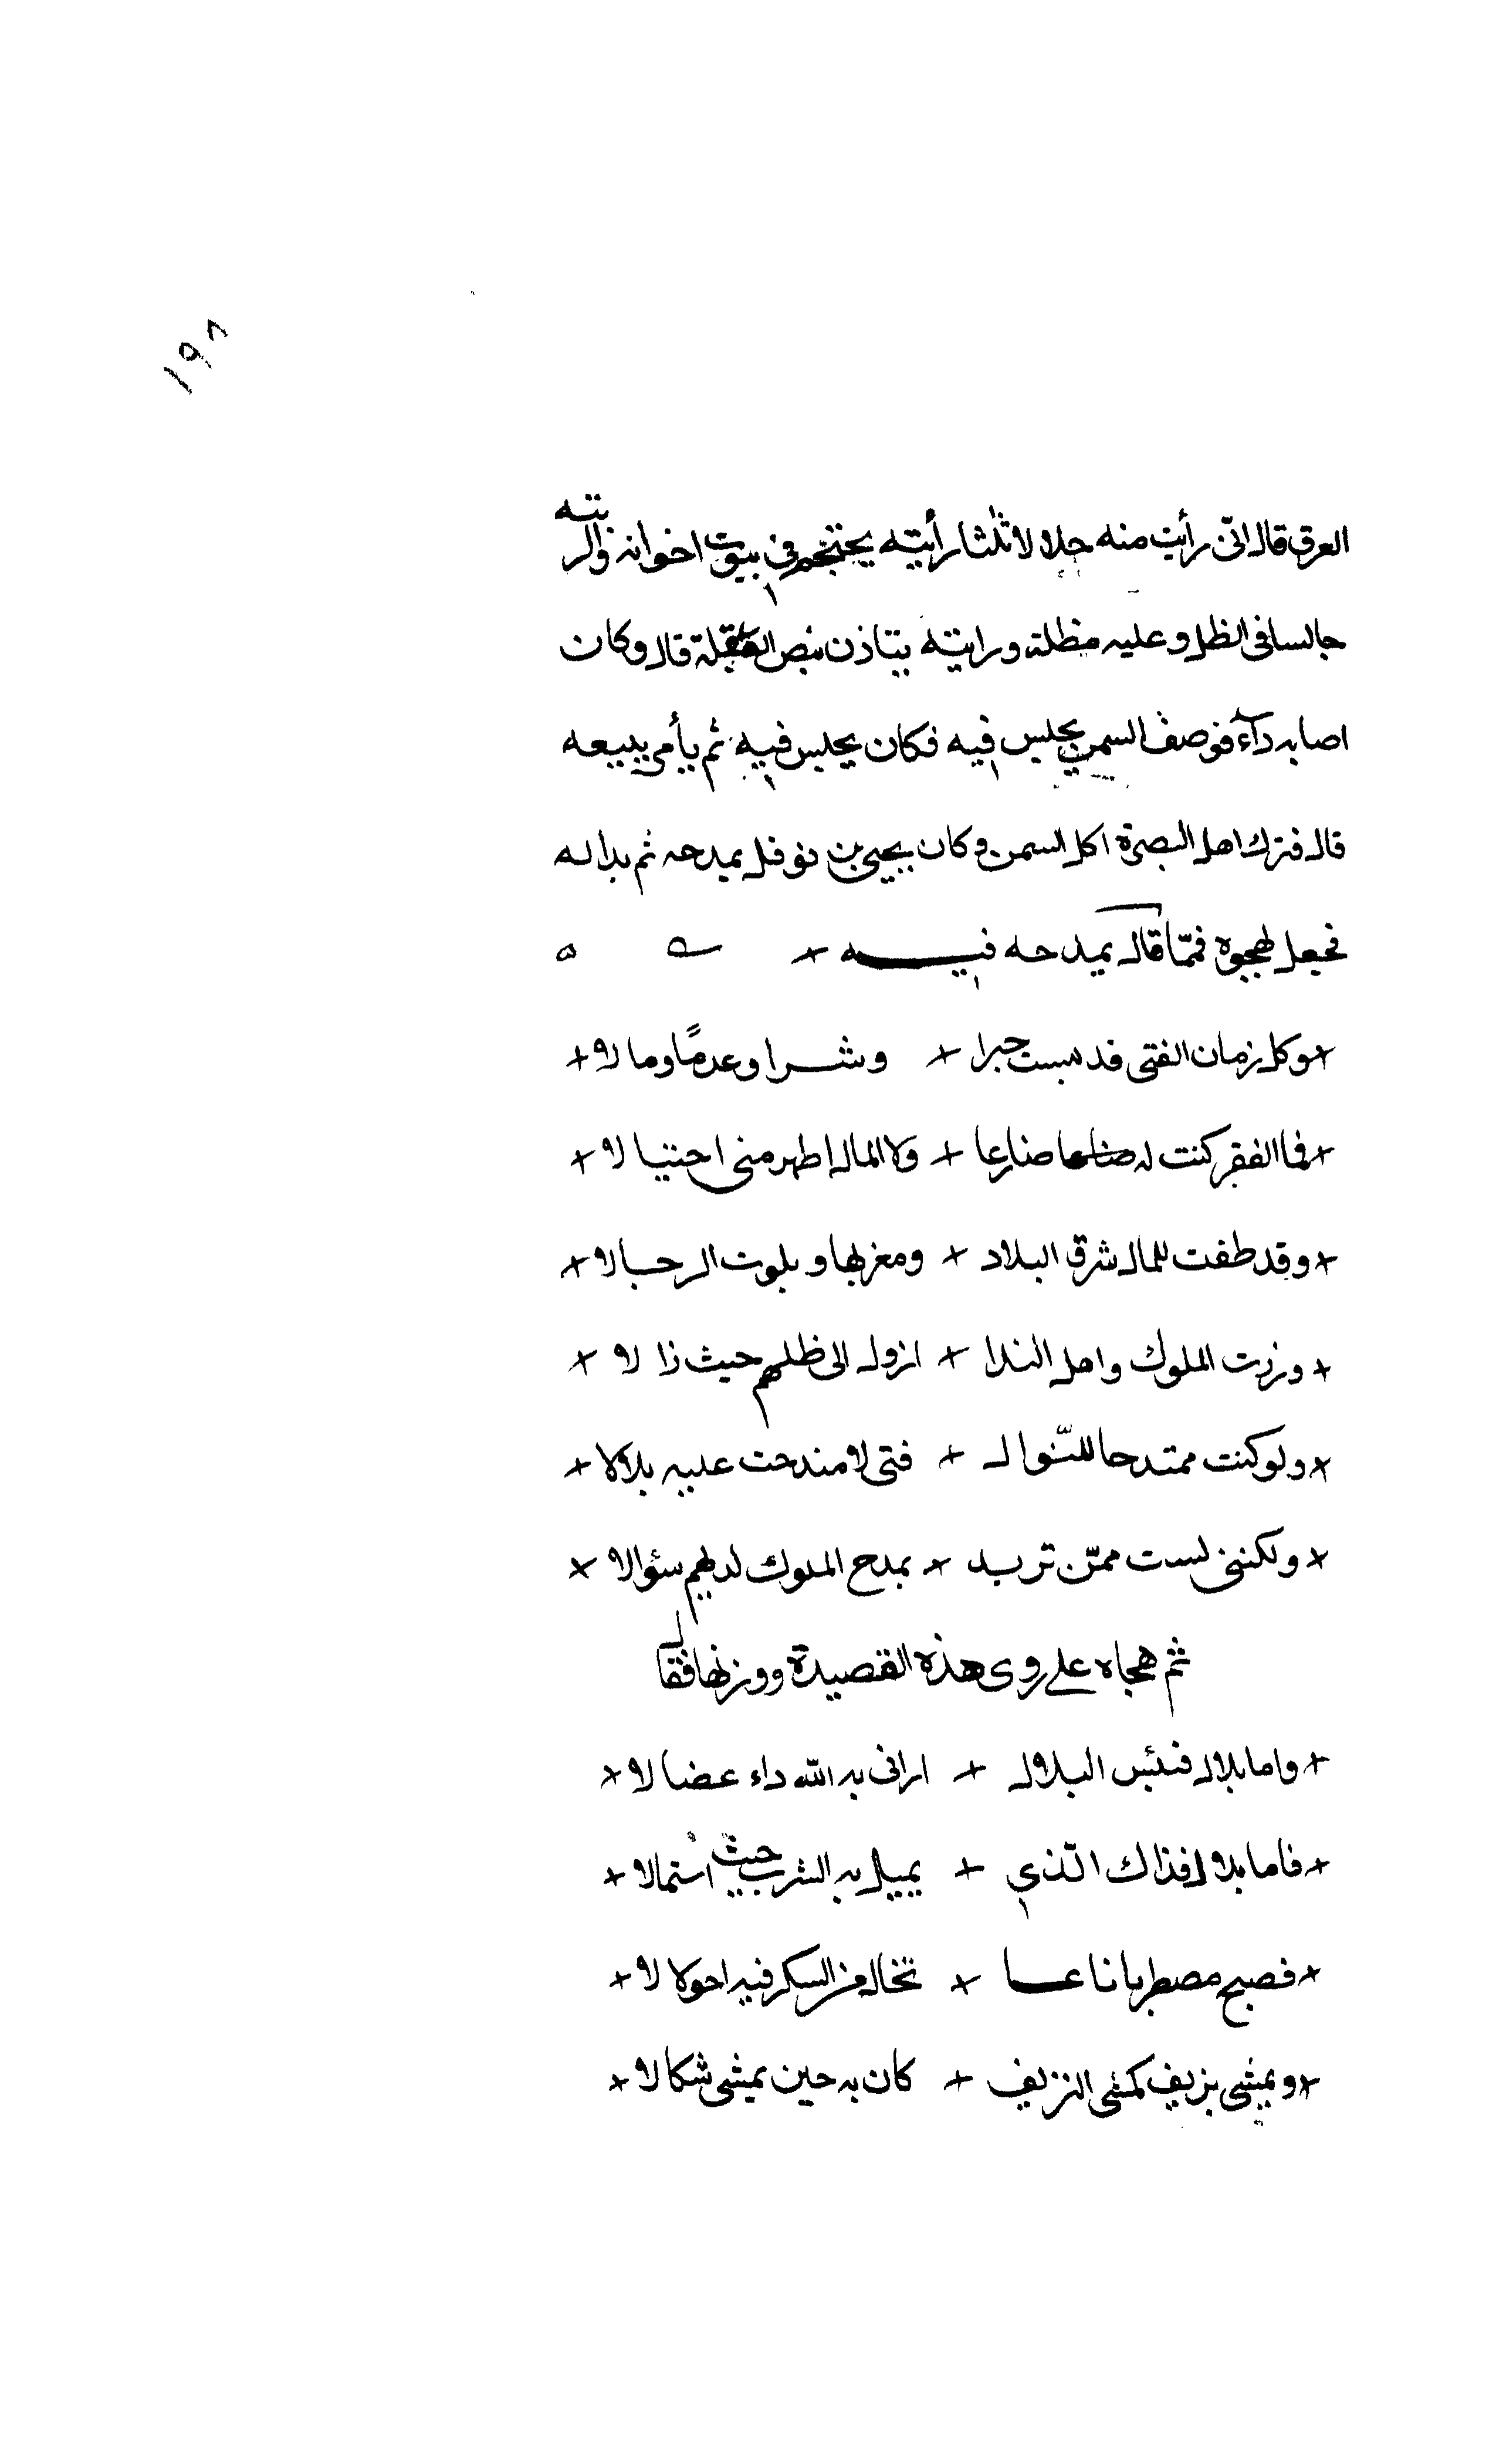 ١٩٨
العرق قال انّى رأيت منه خلالا ثلثا رأيته يحتجم فى بيوت اخوانه ورايته
جالسا فى الظل وعليه مظلة ورايته يتاذن بيض البقيلة قال وكان
اصابه دآء فوصف السمن يجلس فيه فكان يجلس فيه ثم يأمر ببيعه
قال فترك اهل البصرة اكل السمن وكان يحيى بن نوفل يمدحه ثم بدا له
فجعل يهجوه فممّا قال يمدحه فيه +
+ وكل زمان الفتى قد لبست خيرا + وشرا وعدمًا ومالا +
+ فما الفقر كنت له ضارعا + ولا المال اظهر منى اختيالا +
+ وقد طفت للمال شرق البلاد + ومغربها وبلوت الرجالا +
+ وزرت الملوك واهل الندا + ازول الى ظلهم حيث زالا +
+ ولو كنت ممتدحا للنّوال + فتى لامتدحت عليه بلالا +
+ ولكننى لست ممّن تريد + بمدح الملوك لديهم سئوالا +
ثم هجاه على روى هذه القصيدة ووزنها فقال
+ واما بلال فبئس البلال + ارانى به الله داء عضالا +
+ فاما بلال فذاك الّذى + يميل به الشرب حيث استمالا +
+ فصبح مصطربا ناعسا + تخال من السكر فيه احولالا +
+ ويمشى بزيف كمشى النزيف + كان به حين يمشى شكالا +